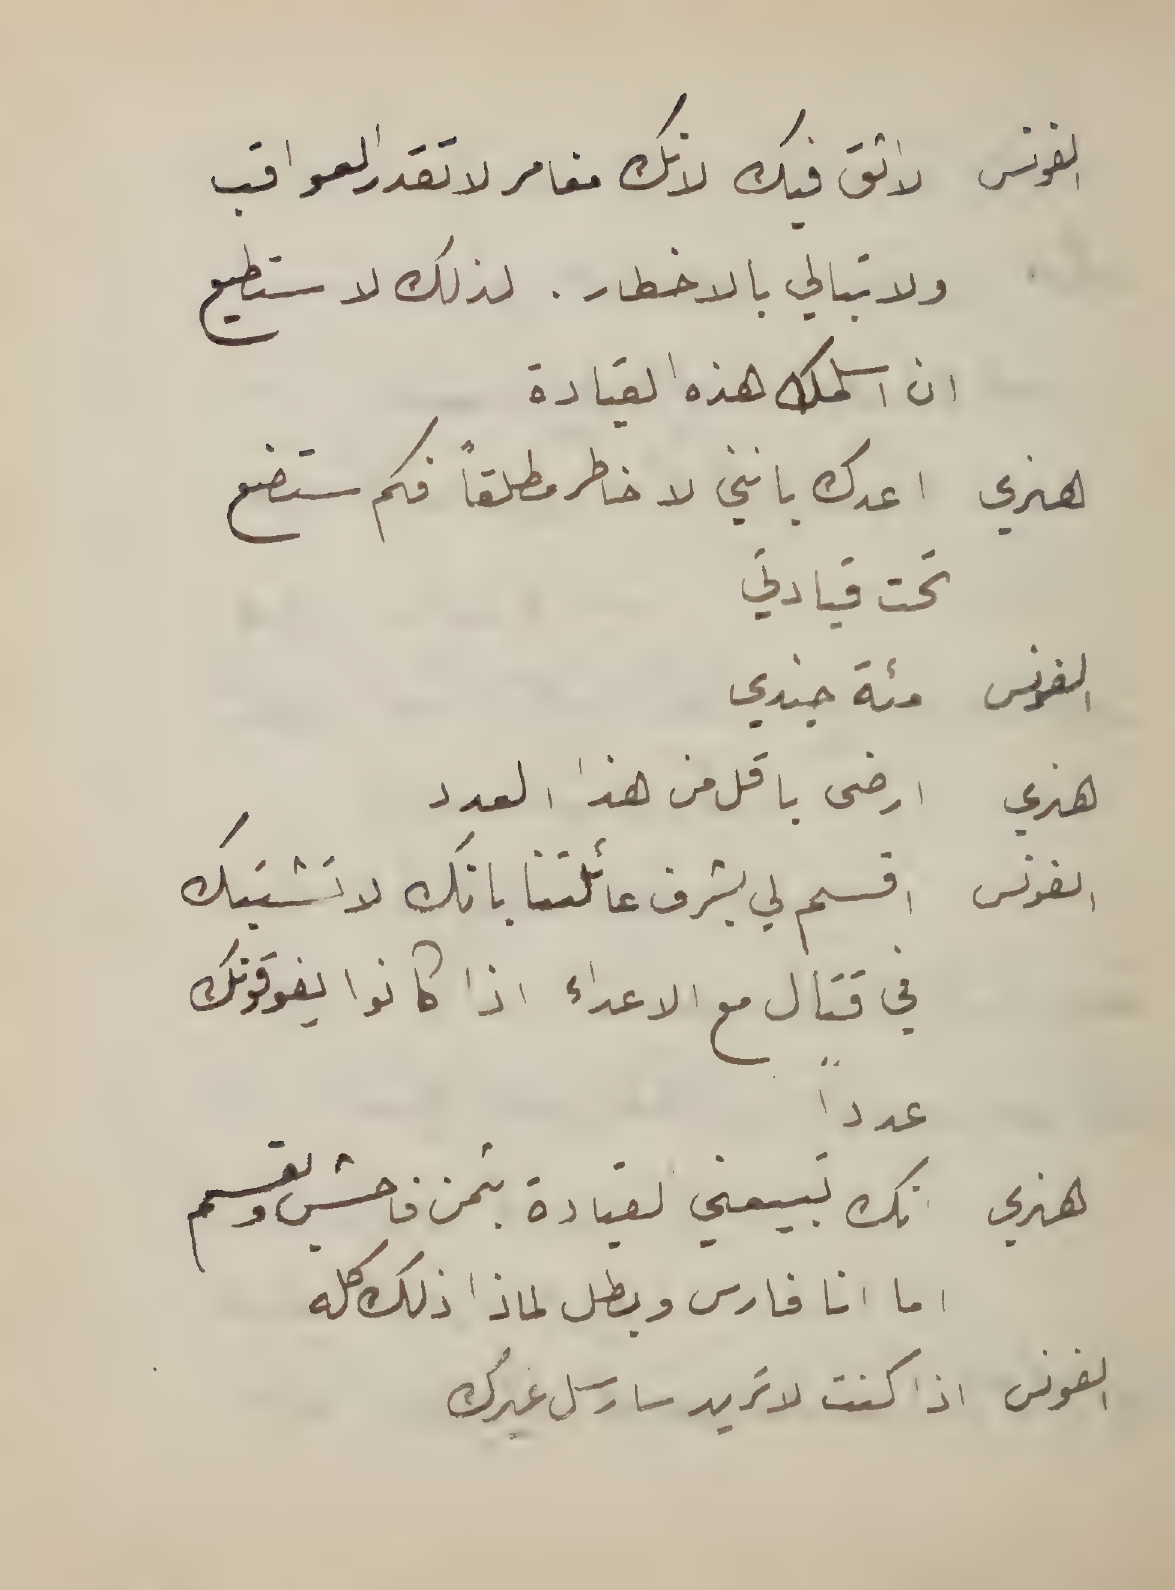 الفونس لا اثق فيك لانك مغامر لا تقدر العواقب
ولا تبالي بالاخطار . لذلك لا ستطيع
ان اسلمك هذه القيادة
هنري اعدك بانني لا خاطر مطلقاً فكم ستضع
تحت قيادتي
الفونس مئة جندي
هنري ارضى باقل من هذا العدد
الفونس اقسم لي بشرف عائلتنا بانك لا تشتبك
في قتال مع الاعداء اذا كانوا يفوقونك
عدداً
هنري انك تبيعني القيادة بثمن فاحش وقسم
اما انا فارس وبطل لماذا ذلك كله
الفونس اذا كنت لا تريد سارسل غيرك